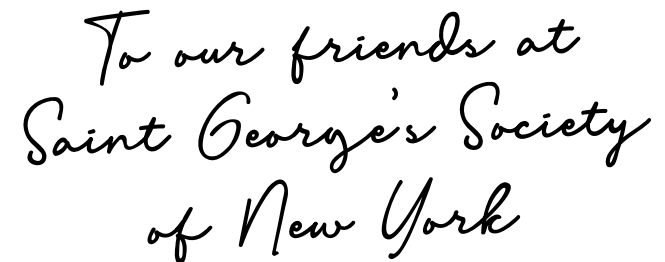 To our friends at
Saint George's Society
of New York